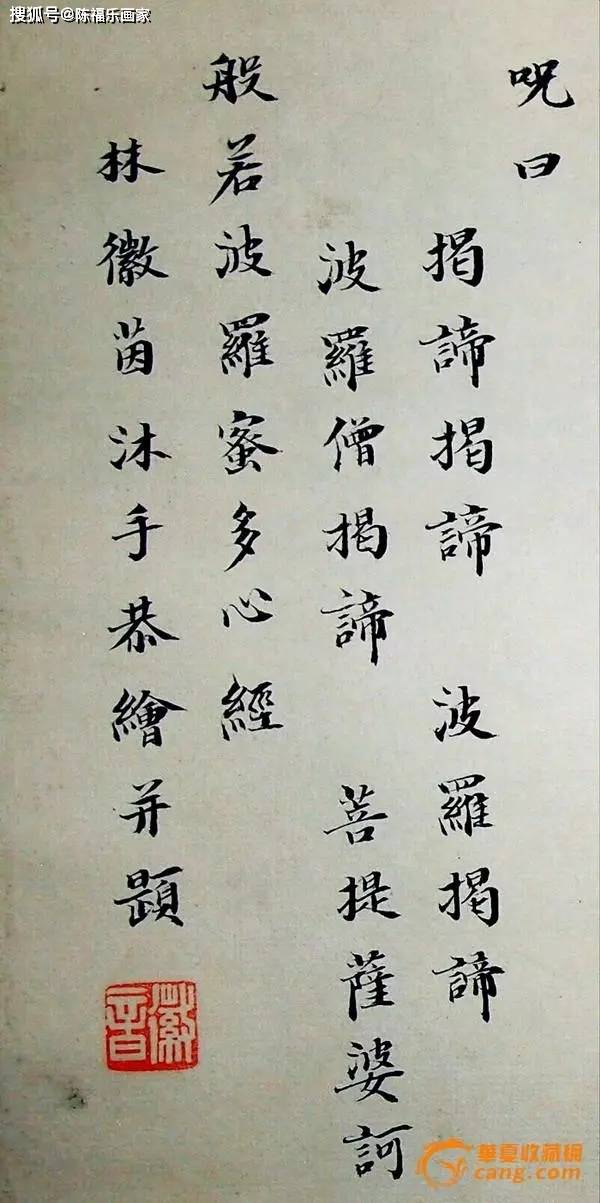 搜狐号@陈福乐画家
呪曰
揭諦揭諦 波羅揭諦
波羅僧揭諦 菩提薩婆訶
般若波羅蜜多心經
林徽茵沐手恭繪并題
徽音
華夏收藏網
cang.com